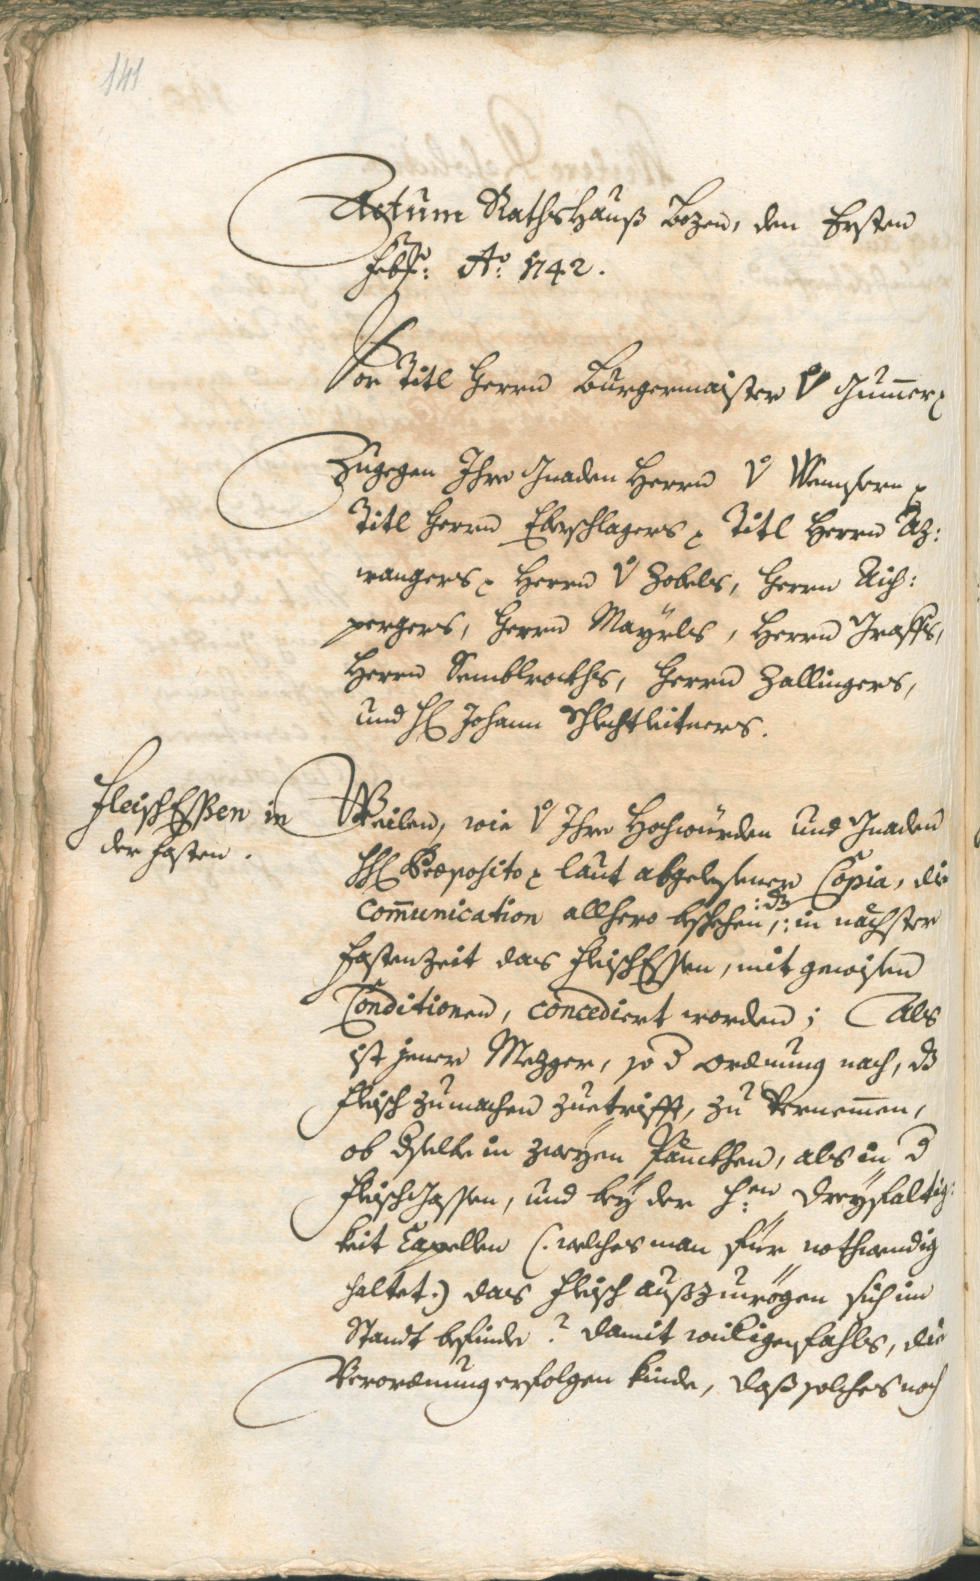 141
Actum Rathshauß Bozen, den Ersten
Febr: Ao: 1742.
Vor Titl Herrn Burgermaister v Gum̄er
Zugegen Ihro Gnaden Herrn v Wenseren
Titl Herrn Eberschlagers Titl Herrn Az:
wangers Herrn v Zobels, Herrn Aich:
pergers, Herrn Mayrls, Herrn Graffs,
Herrn Semblrockhs, Herrn Zallingers,
und H Johann Schlechtleitners.
FleischEßen in
der Fasten.
Weilen, wie v Ihro Hochwürden und Gnaden
HH Præposito laut abgelesener Copia, die
Com̄unication allhero beschehen, :dz: in nächster
Fastenzeit das FleischEssen, mit gewisen
Conditionen, concediert worden; Als
ist jener Mezger, so d ordnung nach, dz
Fleisch zumachen zuetrifft, zu vernem̄en,
ob dselbe in zweyen Pänckhen, als in d
Fleischgassen, und bey der H:en Dreyfaltig:
keit Capellen (: welches man für nothwendig
haltet:) das Fleisch außzuwögen sich im
Standt befinde? damit widrigenfahls, die
Verordnung erfolgen kinde, daß solches noch